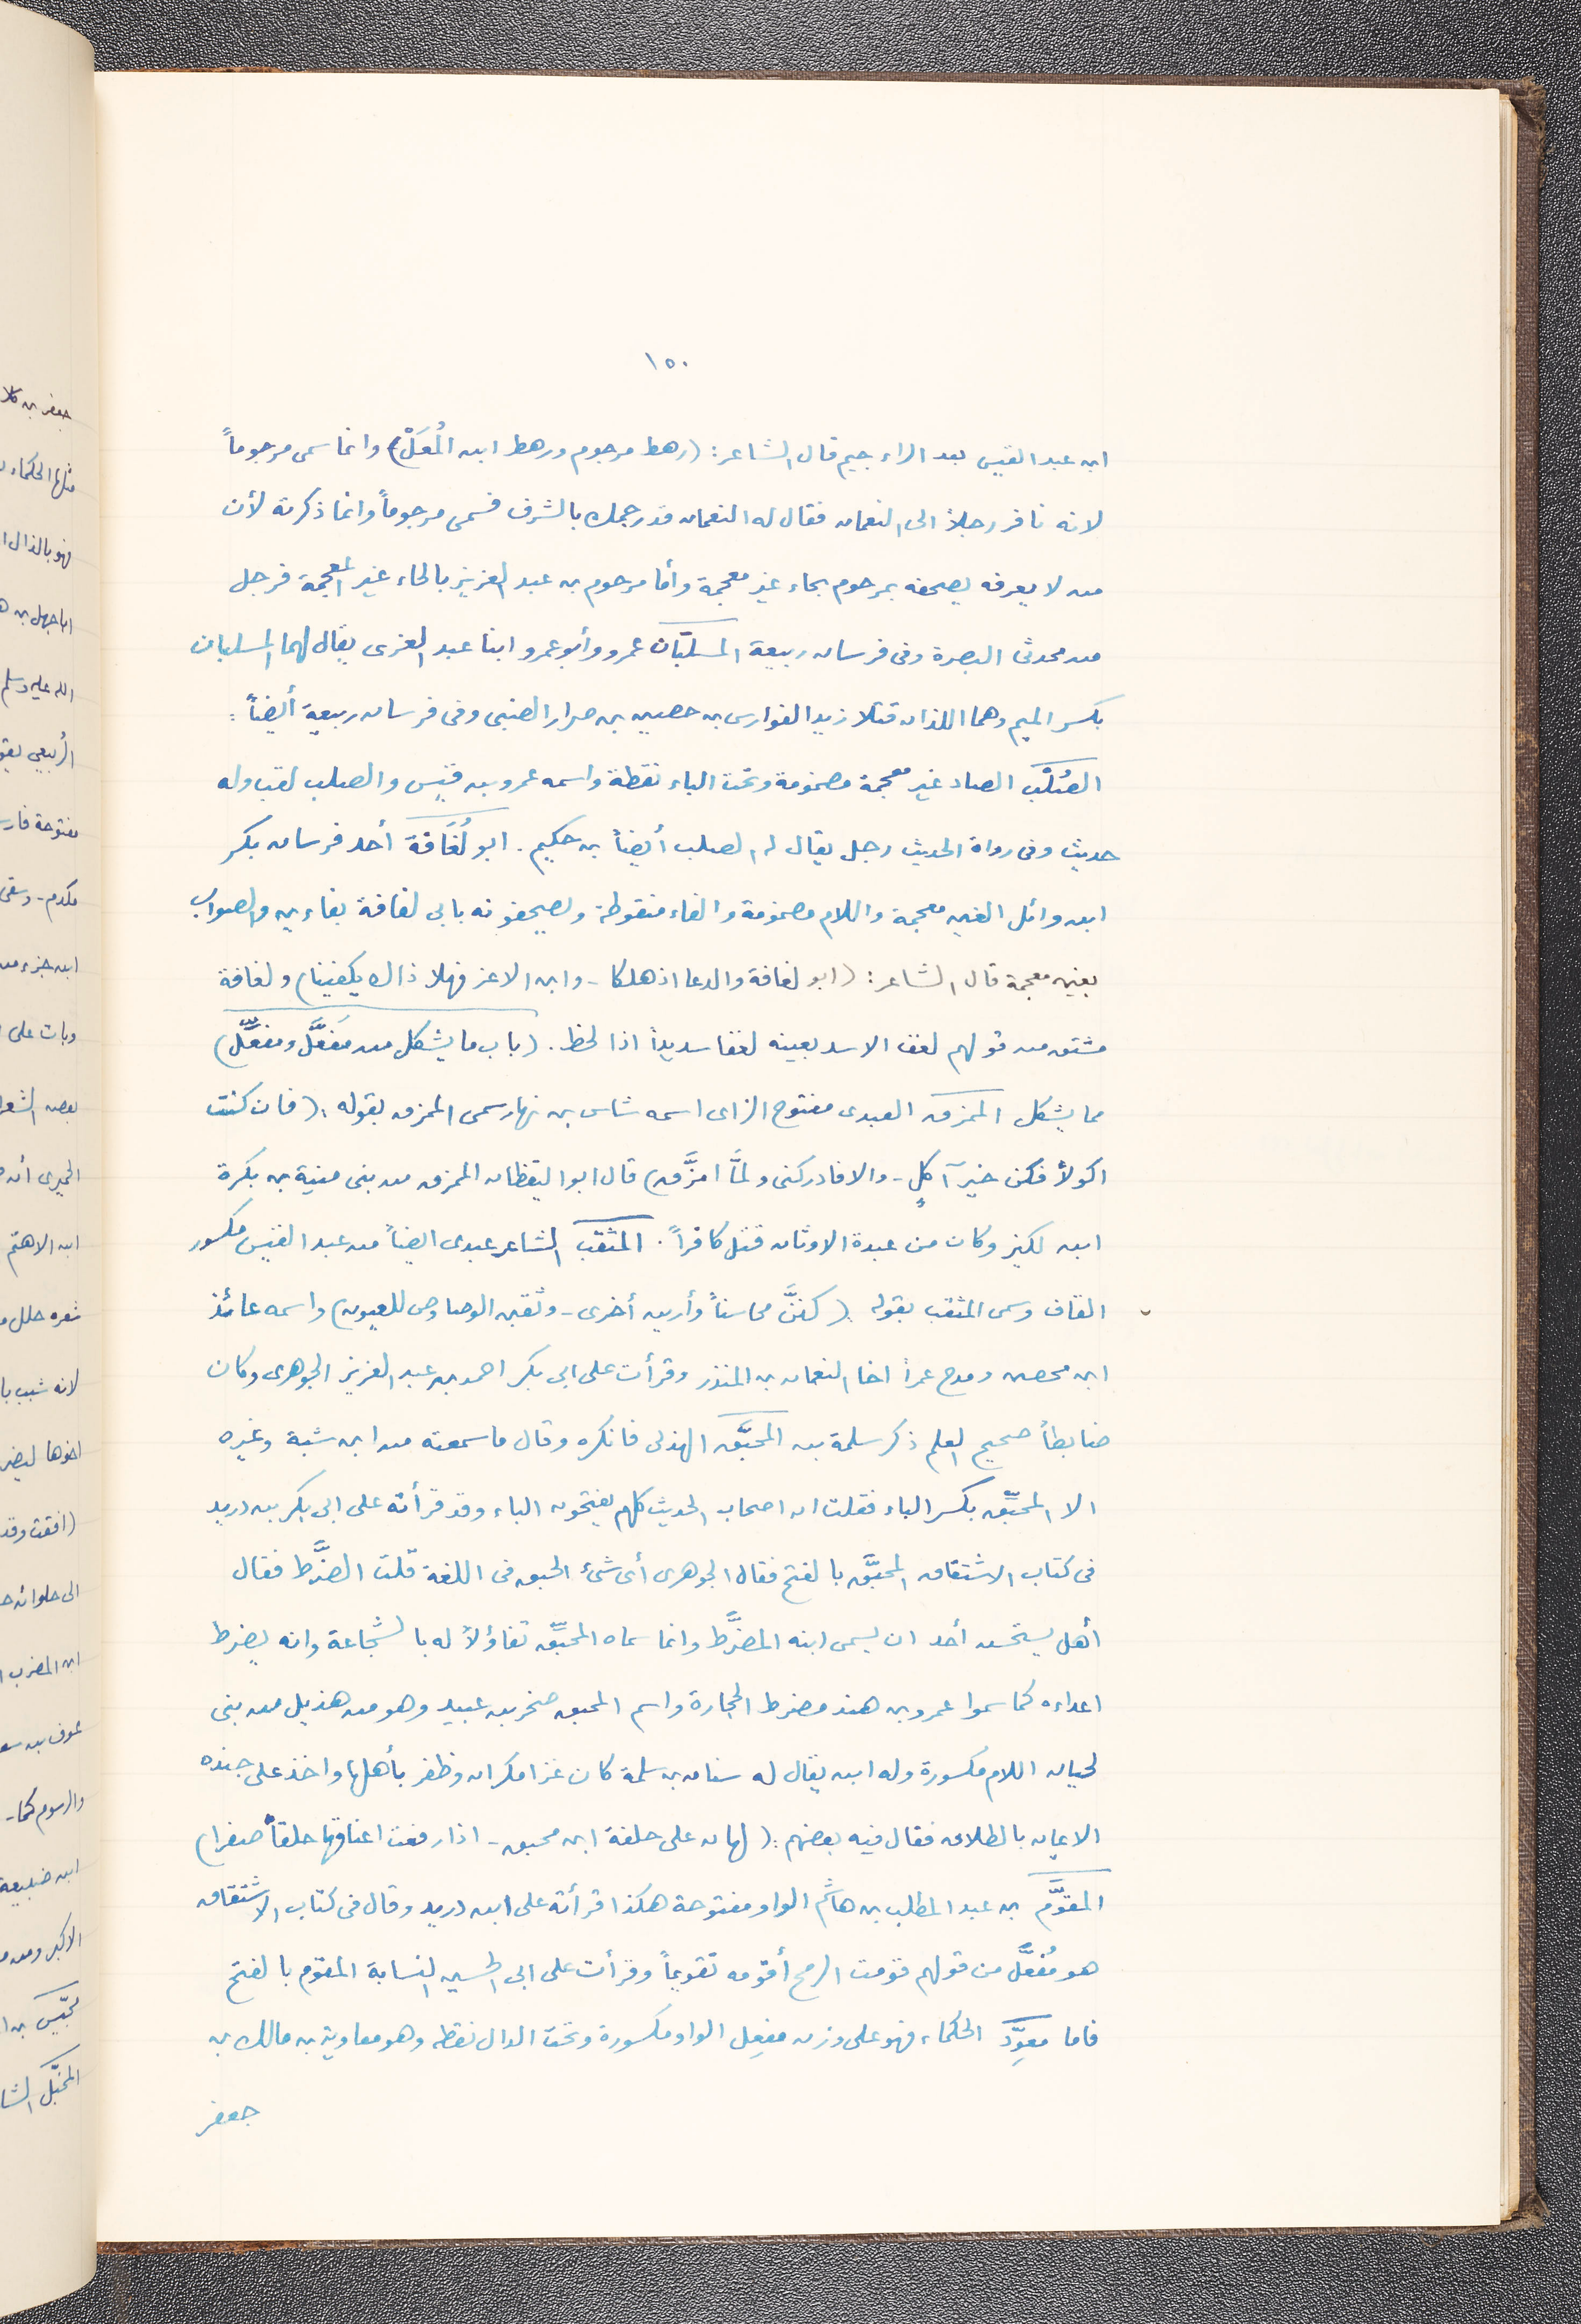 ١٥٠
ابن عبد القيس بعد الراء جيم قال الشاعر: (رهط مرجوم ورهط ابن المُعَلْ) وانما سمى مرجوماً
لانه نافر رجلاً الى النعمان فقال له النعمان قد رجمك بالشرف فسمى مرجوماً وانما ذكرته لأن
من لا يعرفه يصحفه بمرحوم بحاء غير معجمة وأما مرحوم بن عبد العزيز بالحاء غير المعجمة فرجل
من محدثى البصرة وفى فرسان ربيعة المسلبّان عمرو وأبو عمرو ابنا عبد العزى يقال لهما المسلبان
بكسر الميم وهما اللذان قتلا زيد الفوارس بن حصين بن ضرار الضبى وفى فرسان ربيعة أيضاً:
الصُلْب الصاد غير معجمة مضمومة وتحت الباء نقطة واسمه عمرو بن قيس والصلب لقب وله
حديث وفى رواة الحديث رجل يقال له الصلب أيضاً بن حكيم. ابو لُغَافة أحد فرسان بكر
ابن وائل الغين معجمة واللام مضمومة والفاء منقوطة ويصحفونه بابى لفافة بفاءين والصواب
بغين معجمة قال الشاعر: (ابو لغافة والدعا اذ هلكا - وابن الاغر فهلا ذاك يكفينا) ولغافة
مشتق من قولهم لغف الاسد بعينه لغفا سديداً اذا لحظ. (باب ما يشكل من مَفعَّل ومفعِّل)
مما يشكل الممزق العبدى مفتوح الزاى اسمه شاس بن نهار سمى الممزق بقوله: (فان كنت
اكولاً فكن خير آكلٍ - والا فادركنى ولمَّا امزَّق) قال ابو اليقظان الممزق من بنى منية بن بكرة
ابن لكيز وكان من عبدة الاوثان قتل كافراً. المثقب الشاعر عبدى ايضاً من عبد القيس مكسور
القاف وسمى المثقب بقوله (كننَّ محاسناً وأرين أخرى - وثقبن الوصاوص للعيون) واسمه عائذ
ابن محصن ومدح عمراً اخا النعمان بن المنذر وقرأت على ابى بكر احمد بن عبد العزيز الجوهرى وكان
ضابطاً صحيح العلم ذكر سلمة بن المحبَّق الهذلى فانكره وقال ما سمعته من ابن شبة وغيره
الا المحبِّق بكسر الباء فقلت ان اصحاب الحديث كلهم يفتحون الباء وقد قرأته على ابى بكر بن دريد
فى كتاب الاشتقاق المحبَّق بالفتح فقال الجوهرى أى شئ الحبق فى اللغة قلت الضرَّط فقال
أهل يستحسن أحد ان يسمى ابنه المضرَّط وانما سماه المحبِّق تفاؤلاً له بالشجاعة وانه يضرط
اعداءه كما سموا عمرو بن هند مضرط الحجارة واسم المحبق صخر بن عبيد وهو من هذيل من بنى
لحيان اللام مكسورة وله ابن يقال له سنان بن سلمة كان غزا مكران وظفر بأهلها واخذ على جنده
الايمان بالطلاق فقال فيه بعضهم: (لهان على حلفة ابن محبق - اذا رفعت اعناقها حلقاً صفرا)
المقوَّم بن عبد المطلب بن هاشم الواو مفتوحة هكذا قرأته على ابن دريد وقال فى كتاب الاشتقاق
هو مُفعَّل من قولهم قومت الرمح أقومه تقويماً وقرأت على ابى الحسين النسابة المقوم بالفتح
فاما معوِّد الحكماء فهو على وزن مفعِل الواو مكسورة وتحت الدال نقطه وهو معاوية بن مالك بن
جعفر